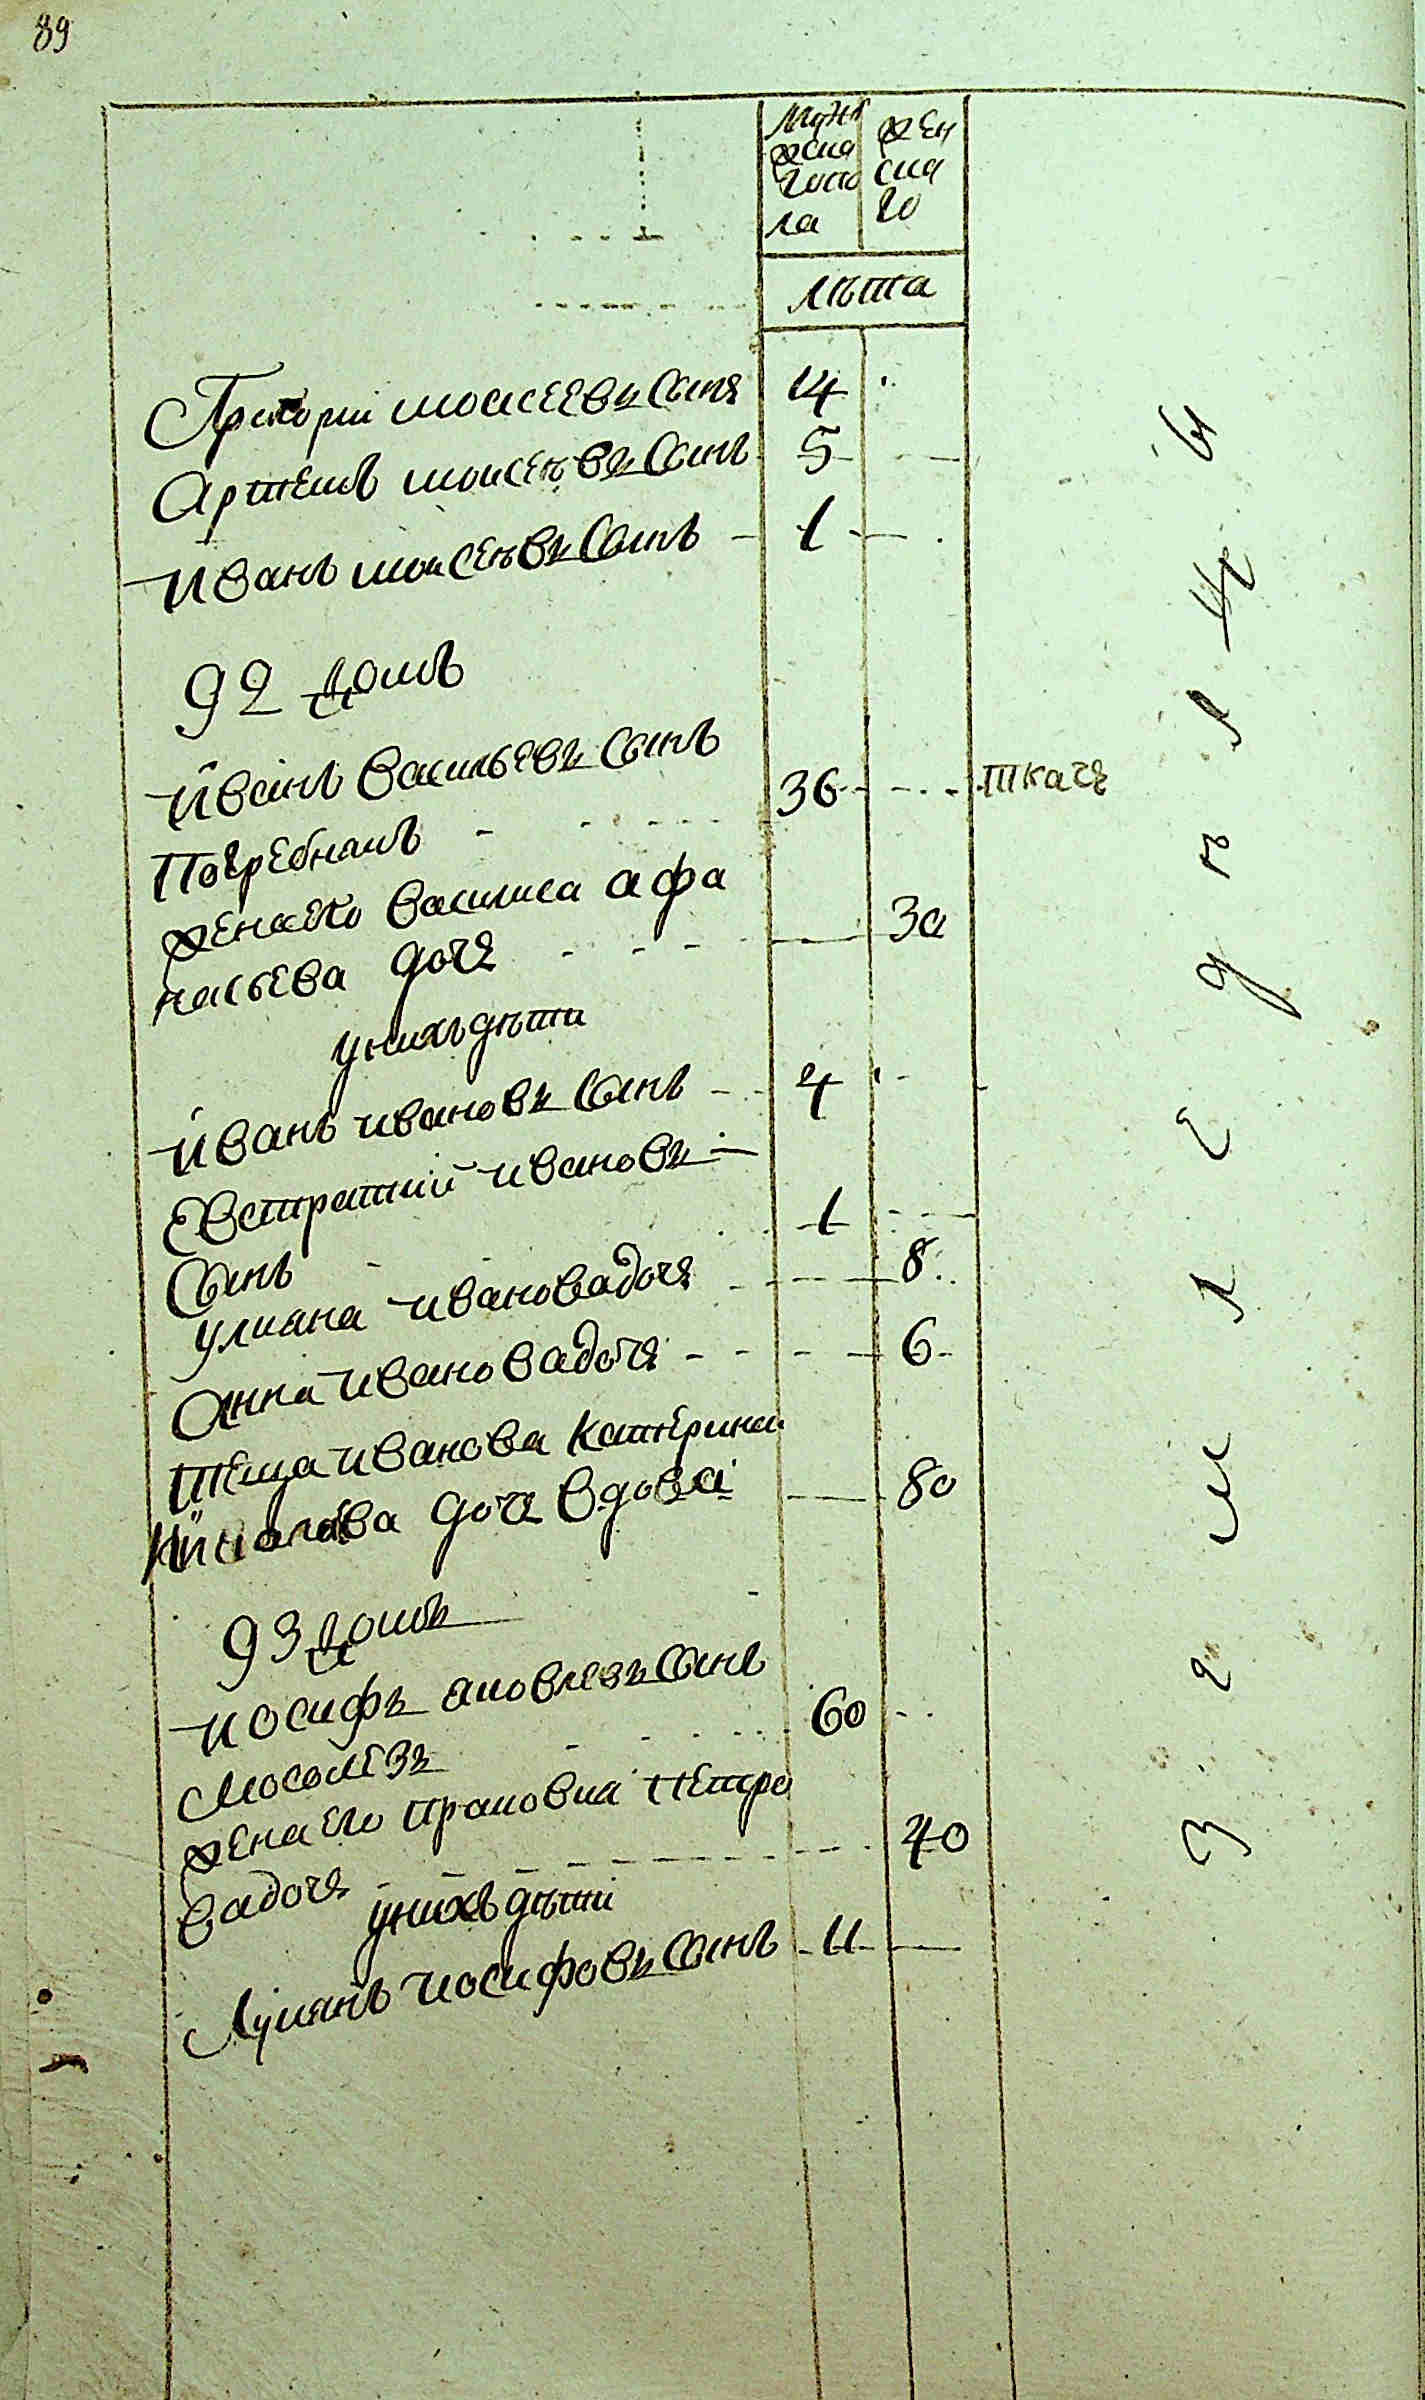 89
мужескаго пола
женскаго
лѣта
Григории моисеевъ сынъ 14
Артемъ моисеѣвъ сынъ 5
иванъ моисеѣвъ сынъ 1
92 домъ
иванъ васильевъ сынъ
Погребнакъ 36 ткачь
жена его василиса афа
насьева дочь 30
у нихъ дѣти
иванъ ивановъ сынъ 4
Евстратий ивановъ
сынъ 1
улиана иванова дочь 8
Анна иванова дочь 6
теща иванова катерина
дочь вдова 80
93 домъ
иосифъ яковлевъ сынъ
60
жена его прасковиа петро
ва дочь 40
у нихъ дѣти
Лукянъ иосифовъ сынъ 11
земледѣлцы